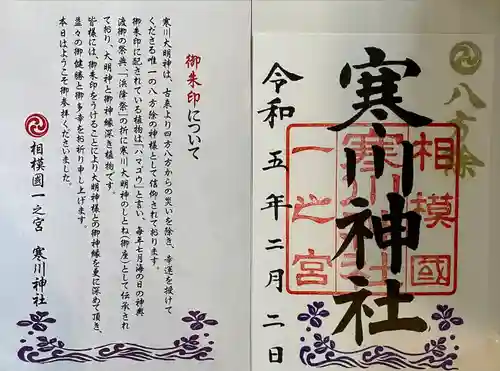 八方除
寒川神社
相模國
寒川神社
一之宮
令和五年二月二日
御朱印について
寒川大明神は、古来より四方八方からの災いを除き、幸運を授けて
くださる唯一の八方除の神様として信仰されております。
御朱印に配されている植物は「ハマゴウ」と言い、毎年七月海の日の神輿
渡御の祭典「浜降祭」の折に寒川大明神のしとね(御座)として伝承され
ており、大明神と御神縁深き植物です。
皆様には、御朱印をうけることにより大明神様との御神縁を更に深めて頂き、
益々の御健勝と御多幸をお祈り申し上げます。
本日はようこそ御参拝くださいました。
相模國一之宮 寒川神社